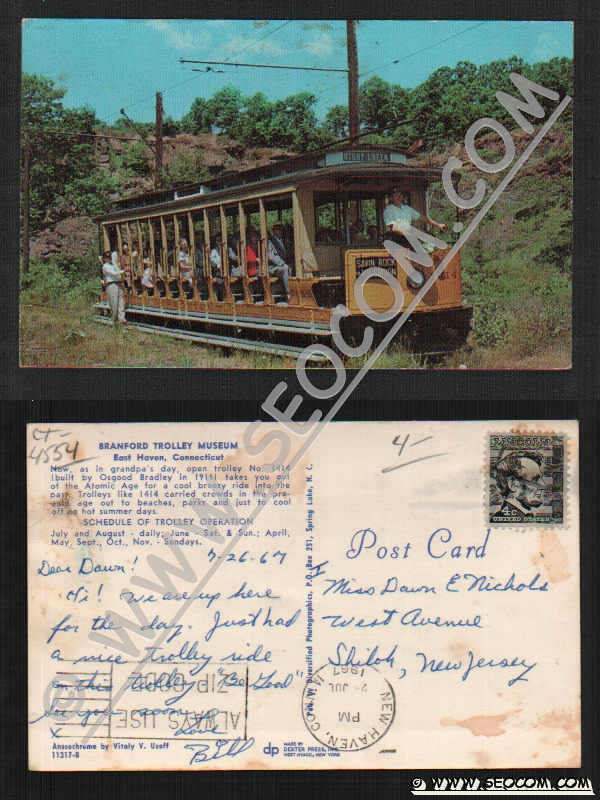 SAVIN ROCK
1414
WWW.SEOCOM.COM
CT-
4554
4-
BRANFORD TROLLEY MUSEUM
East Haven, Connecticut
Now, as in grandpa's day, open trolley No. 1414
(built by Osgood Bradley in 1911) takes you out
of the Atomic Age for a cool breezy ride into the
past. Trolleys like 1414 carried crowds in the pre-
auto age out to beaches, parks and just to cool
off on hot summer days.
SCHEDULE OF TROLLEY OPERATION
July and August - daily; June - Sat. & Sun.; April,
May, Sept., Oct., Nov. - Sundays.
7-26-67
Dear Dawn!
Hi! We are up here
for the day. Just had
a nice trolley ride
on this trolley "Be Good"
Love
Bill
x
ALWAYS USE
ZIP CODE
Anscochrome by Vitaly V. Uzoff
11317-B
dp
MADE BY
DEXTER PRESS, INC.
WEST NYACK, NEW YORK
Pub. by Diversified Photographics, P.O. Box 251, Spring Lake, N. C.
4c
UNITED STATES
Post Card
Miss Dawn E Nichols
West Avenue
Shiloh, New Jersey
NEW HAVEN, CONN
PM
JUL
1967
© WWW.SEOCOM.COM